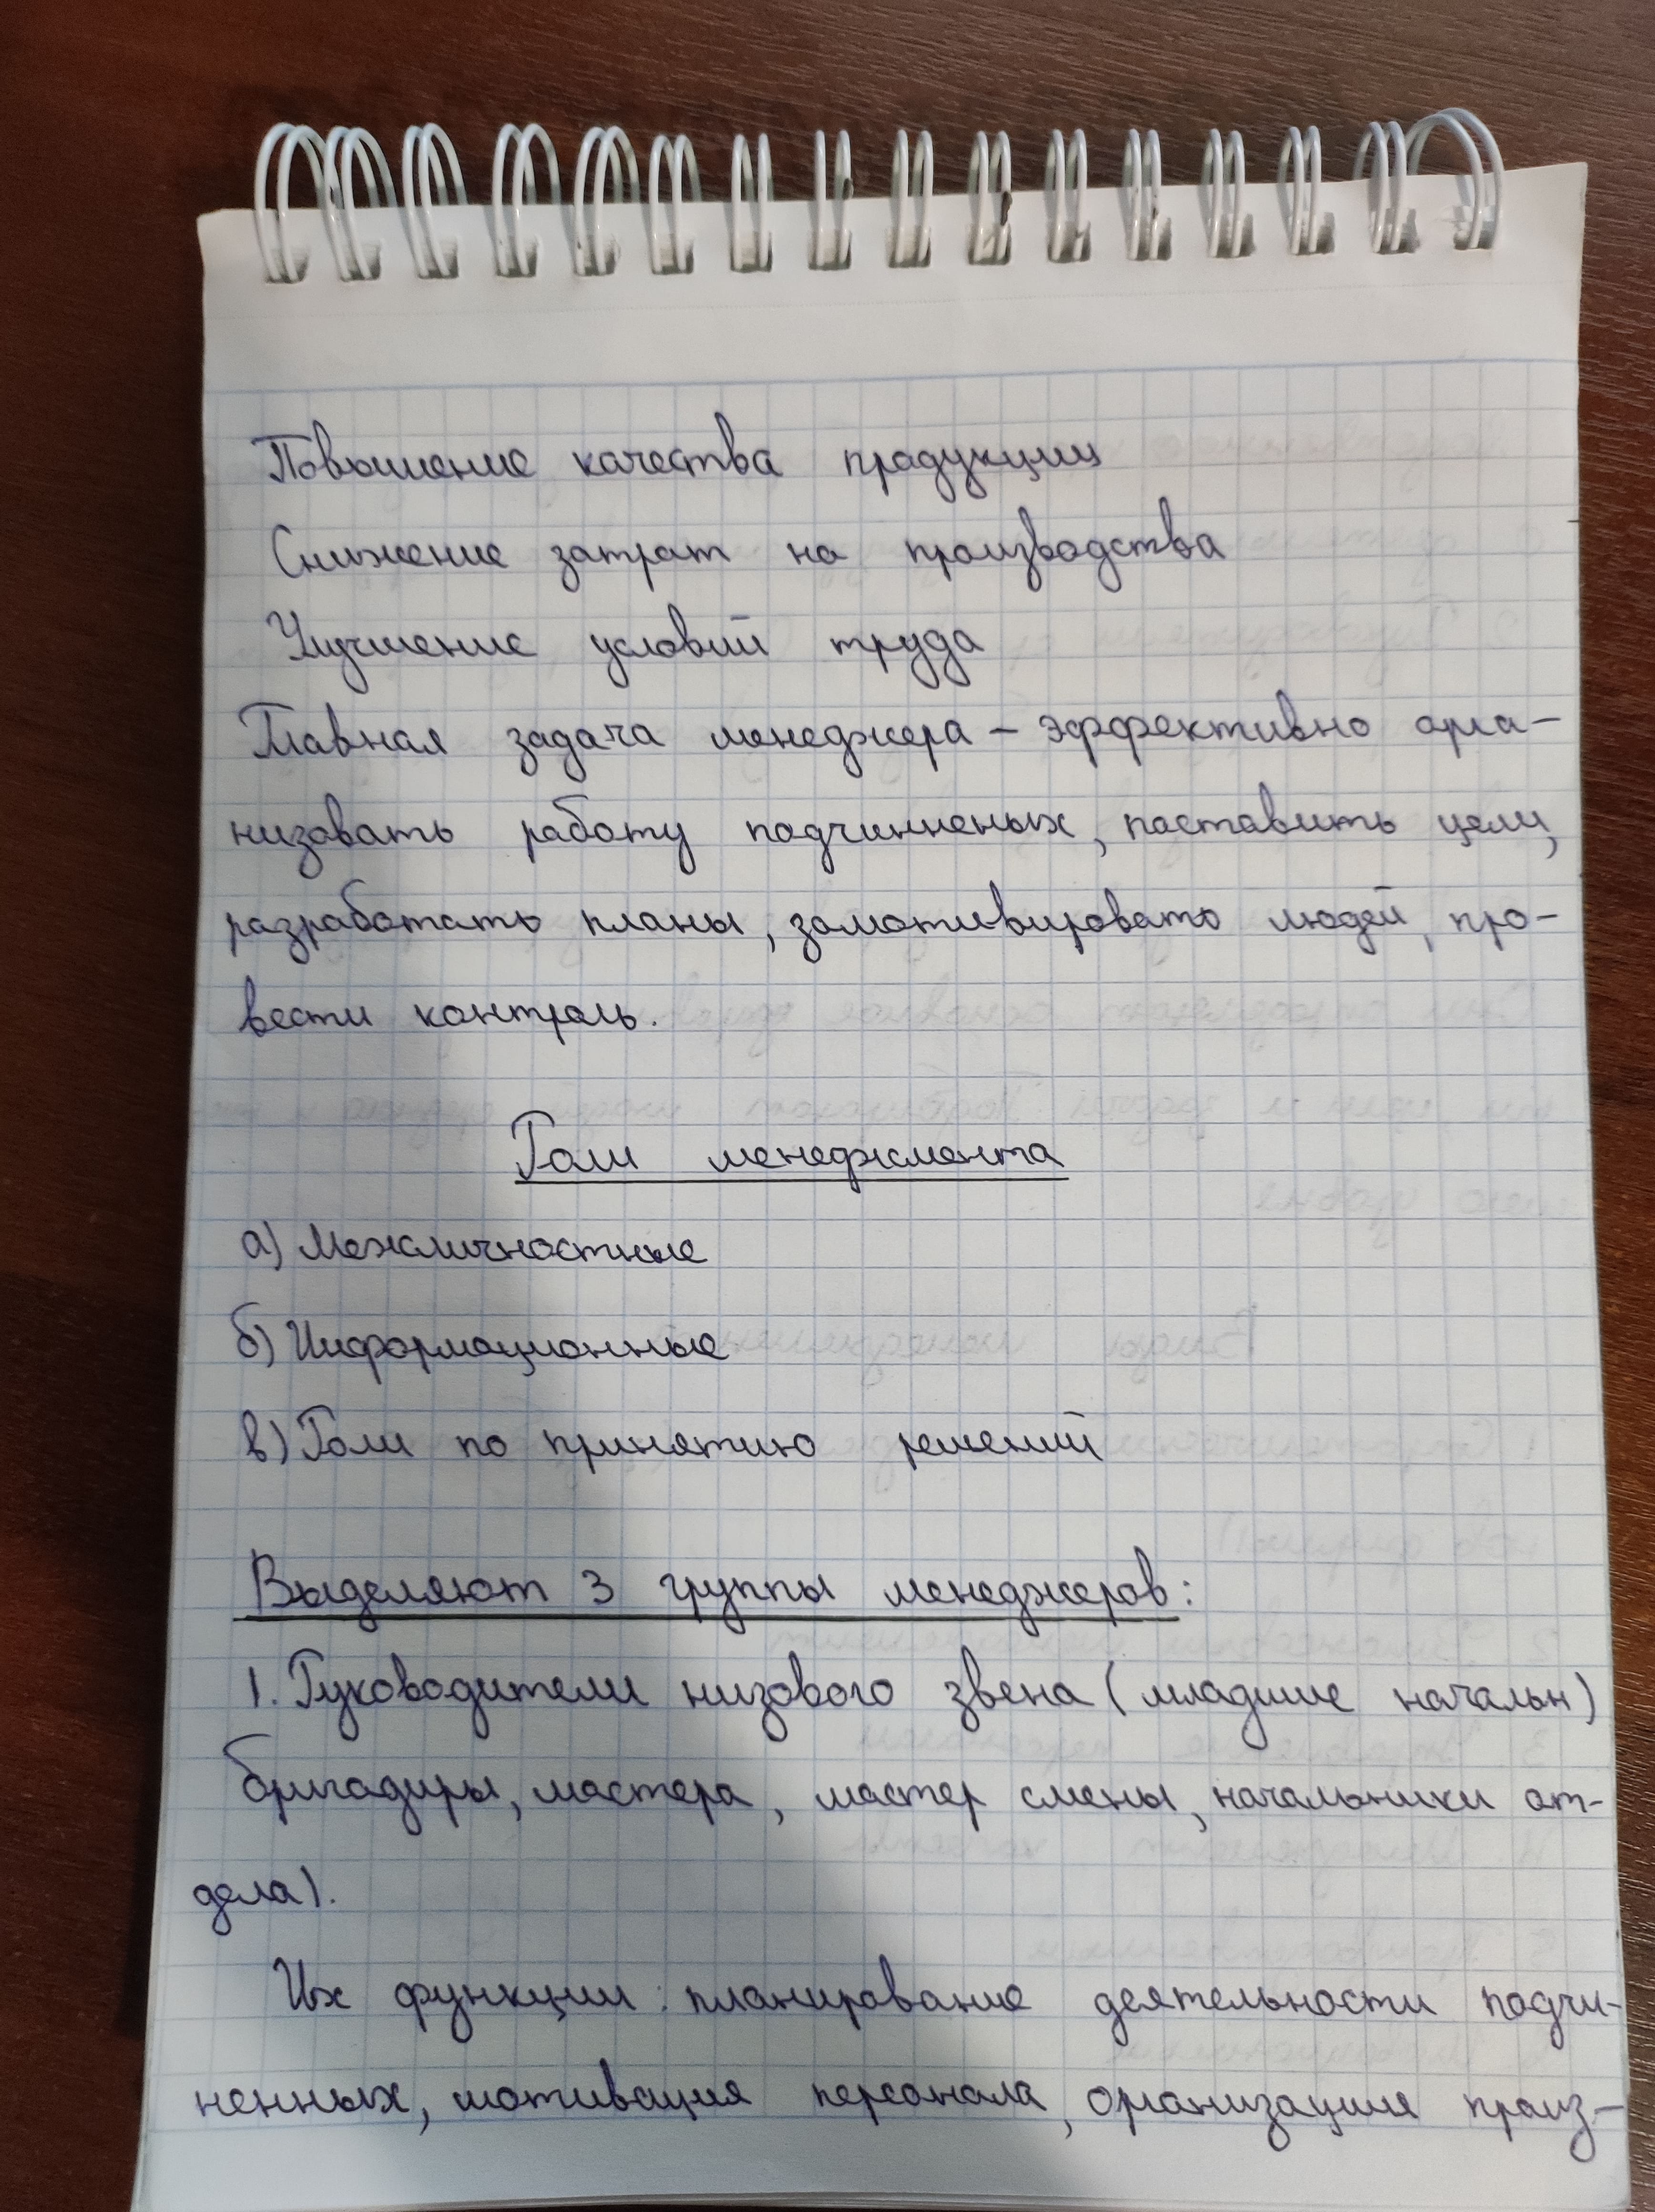 Повышение качества продукции
Снижение затрат на производства
Улучшение условий труда
Главная задача менеджера – эффективно орга-
низовать работу подчинненых, поставить цели,
разработать планы, замотивировать людей, про-
вести контроль.
Роли менеджмента
а) Межличностные
б) Информационные
в) Роли по принятию решений
Выделяют 3 группы менеджеров:
1. Руководители низового звена (младшие начальн)
бригадиры, мастера, мастер смены, начальники от-
дела).
Их функции: планирование деятельности подчи-
ненных, мотивация персонала, организация произ-